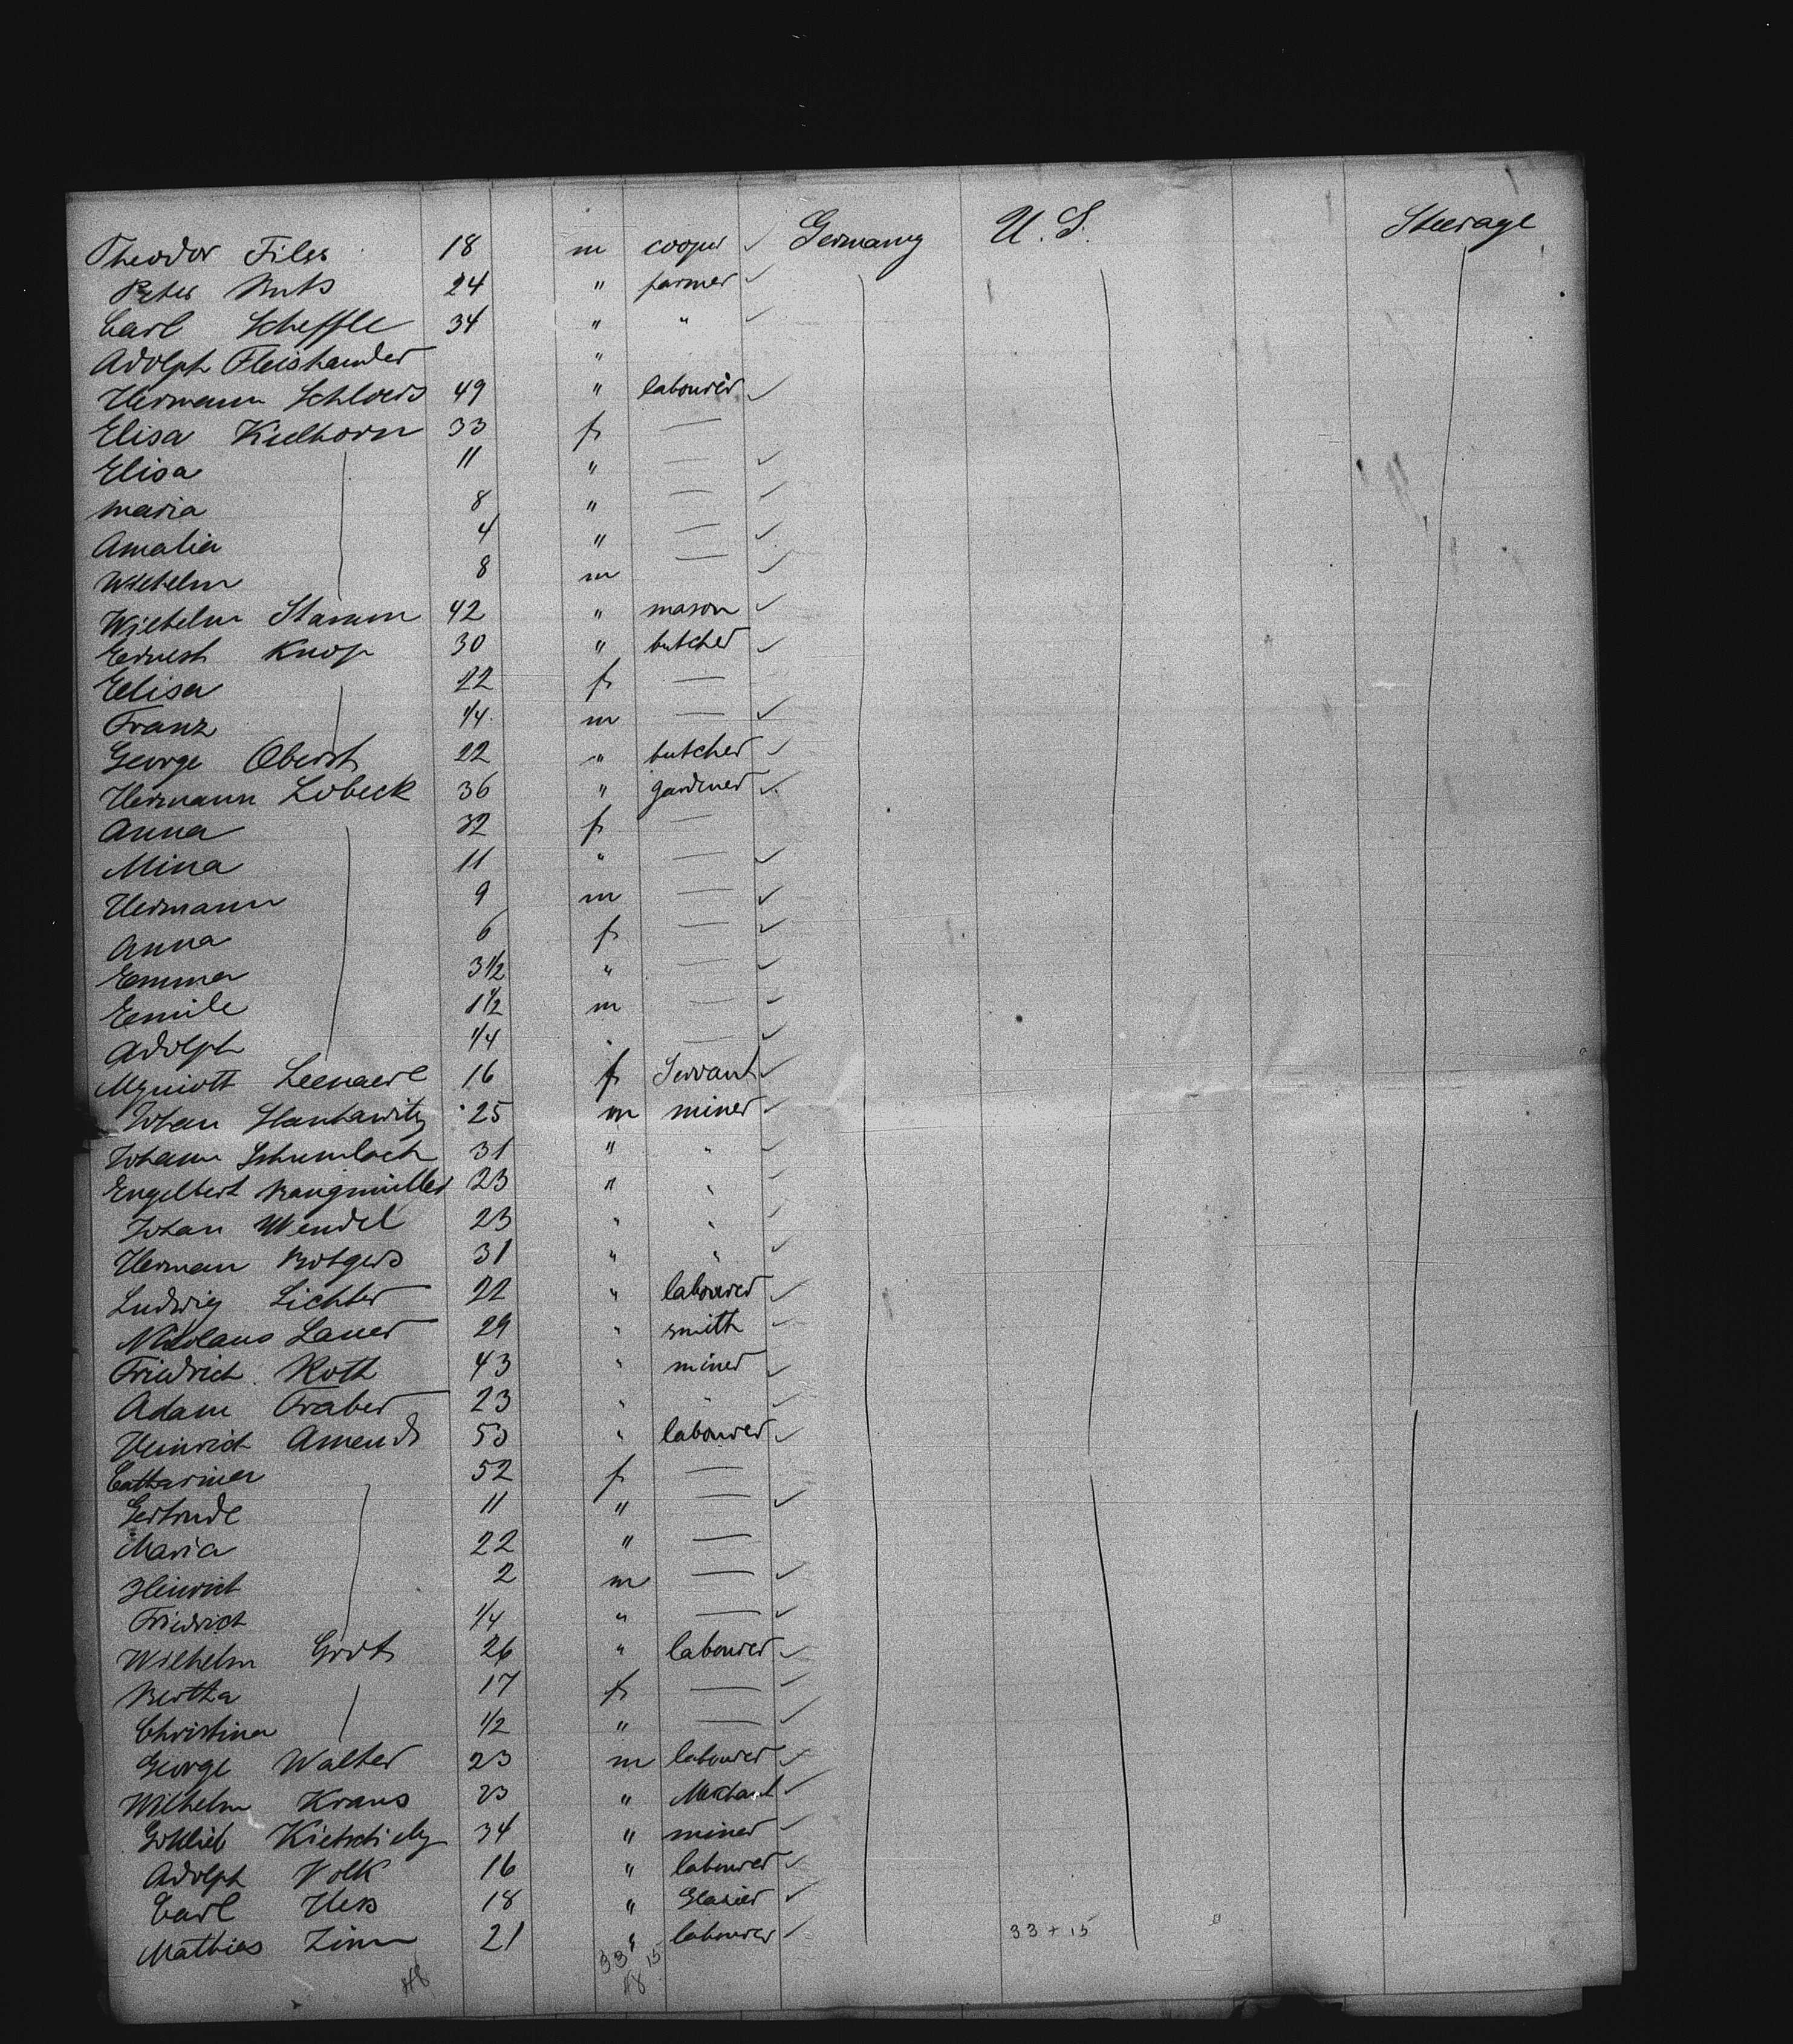 Theodor Files 18 m cooper ✓ Germany U. S. Steerage
Peter Buts 24 " farmer ✓
Carl Scheffle 34 " " ✓
Adolph Fleishander "
Hermann Schloers 49 " labourer ✓
Elisa Kielhorn 33 f —
Elisa 11 " — ✓
Maria 8 " — ✓
Amalia 4 " — ✓
Wilhelm 8 m — ✓
Wilhelm Stamm 42 " mason ✓
Ernest Knop 30 " butcher ✓
Elisa 22 f —
Franz 1/4 m — ✓
George Oberst 22 " butcher ✓
Hermann Lobeck 36 " gardener ✓
Anna 32 f —
Mina 11 " — ✓
Hermann 9 m — ✓
Anna 6 f — ✓
Emma 3 1/2 " — ✓
Emile 1 1/2 m — ✓
Adolph 1/4 " — ✓
Leenaert 16 f Servant ✓
Johan 25 m miner ✓
Johann Schumlach 31 " " ✓
Engelbert Bangmüller 23 " " ✓
Johan Wendel 23 " " ✓
Herman Botgers 31 " " ✓
Ludwig Lichter 22 " labourer ✓
Nikolaus Lauer 29 " smith ✓
Friedrich Roth 43 " miner ✓
Adam Fraber 23 " " ✓
Heinrich Amends 53 " labourer ✓
Catharina 52 f —
Gertrude 11 " — ✓
Maria 22 " —
Heinrich 2 m — ✓
Friedrich 1/4 " — ✓
Wilhelm Grot 26 " labourer ✓
Bertha 17 f — ✓
Christina 1/2 " — ✓
George Walter 23 m labourer ✓
Wilhelm Kraus 23 " Merchant ✓
Gottlieb 34 " miner ✓
Adolph Volk 16 " labourer ✓
Carl Hess 18 " Glasier ✓
Mathias Zinn 21 " labourer ✓ 33 + 15
33 15
48 48